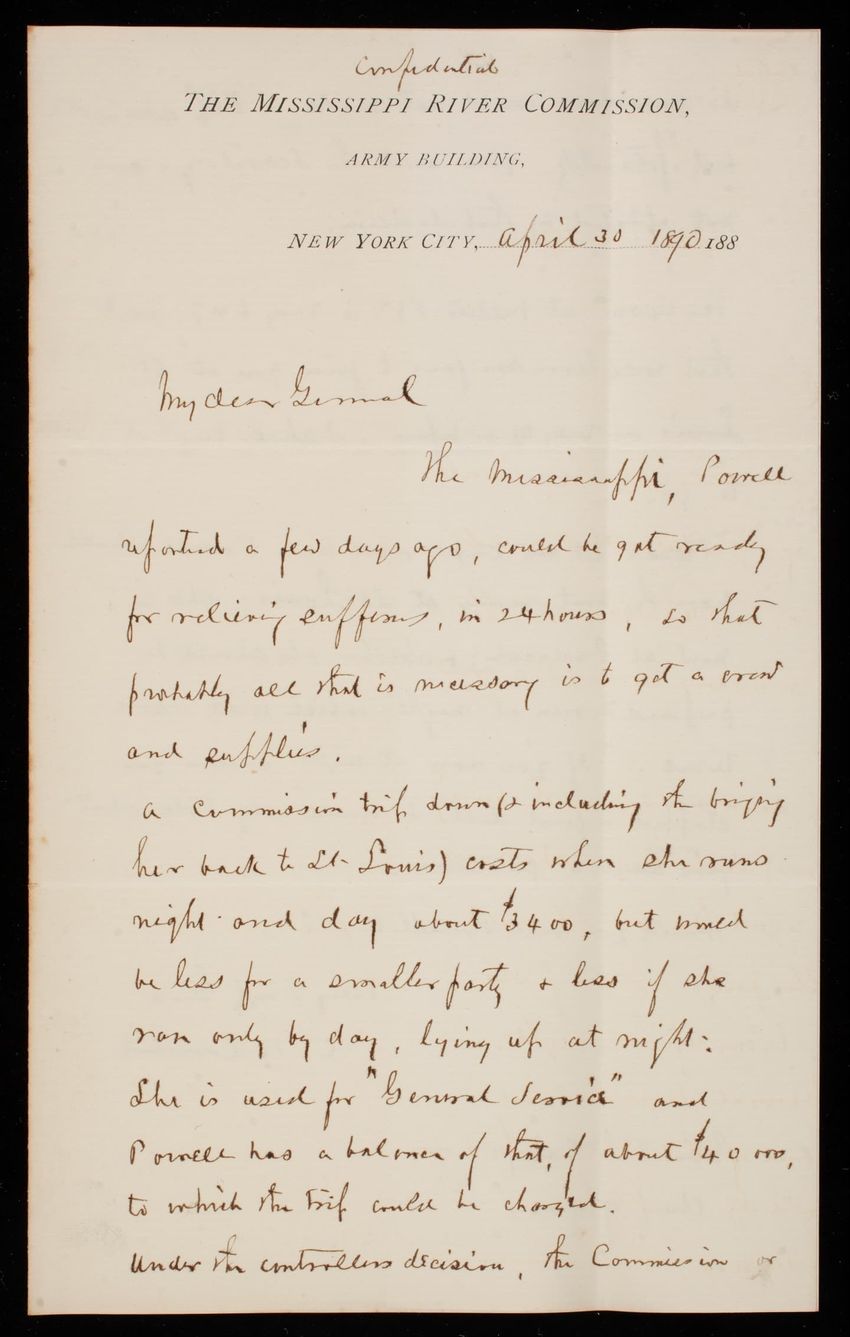 Confidential
THE MISSISSIPPI RIVER COMMISSION,
ARMY BUILDING,
NEW YORK CITY, April 30 1890 188
My dear General
The Mississippi, Powell
reported a few days ago, could be got ready
for relieving sufferers, in 24 hours, so that
probably all that is necessary is to get a crew
and supplies.
A commission trip down (& including the bringing
her back to St Louis) costs when she runs
night and day about $3400, but would
be less for a smaller party & less if she
ran only by day, lying up at night.
She is used for "General Service" and
Powell has a balance of that, of about $40 000,
to which the trip could be charged.
Under the controllers decision, the Commission or